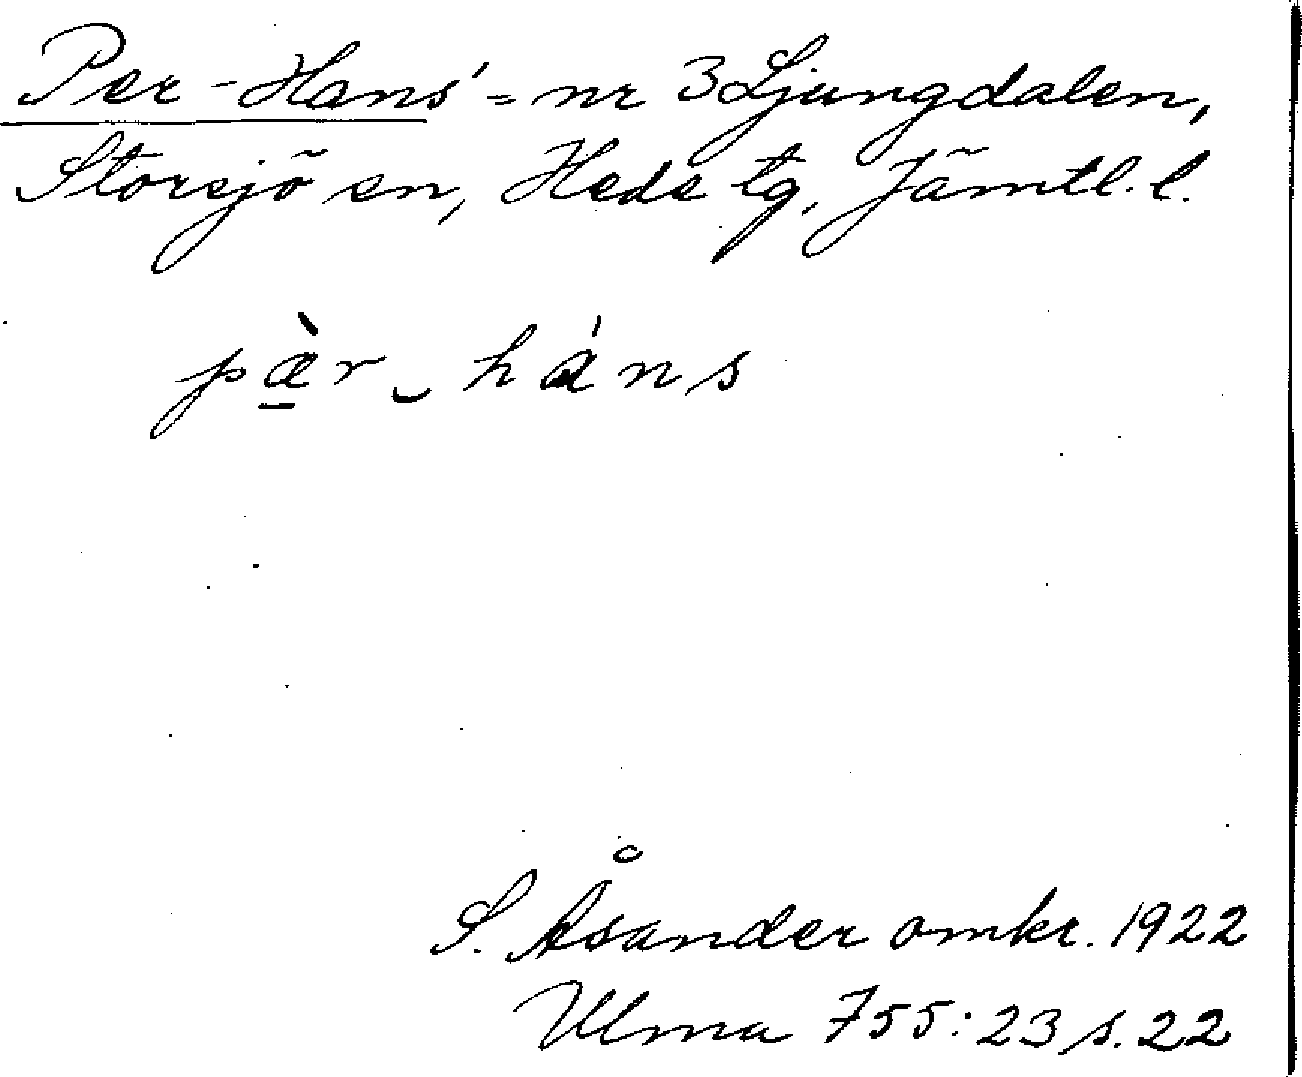 Per-Hans' = nr 3 Ljungdalen,
Storsjö sn, Hede tg, Jämtl. l.
pæ̱̀r ‿ háns
S. Åsander omkr. 1922
Ulma 755:23 s. 22